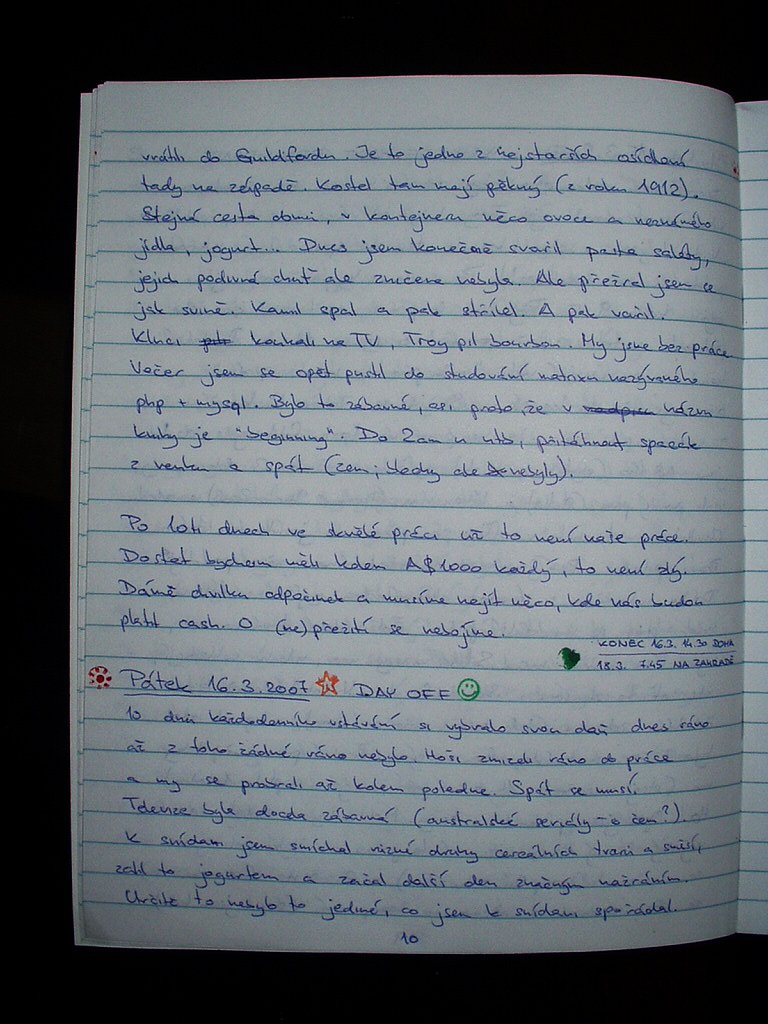 vrátili do Guildfordu. Je to jedno z nejstarších osídlení
tady na západě. Kostel tam mají pěkný (z roku 1912).
Stejná cesta domů, v kontejneru něco ovoce a neznámého
jídla, jogurt... Dnes jsem konečně svařil pasta saláty,
jejich podivná chuť ale zničena nebyla. Ale přežral jsem se
jak svině. Kamil spal a pak střílel. A pak vařil.
Kluci koukali na TV, Troy pil bourbon. My jsme bez práce.
Večer jsem se opět pustil do studování matroxu nazývaného
php + mysql. Bylo to zábavné, asi proto, že v názvu
knihy je "beginning". Do 2am u ntb, přitáhnout spacák
z venku a spát (zem; bledy ale nebyly).
Po 10ti dnech ve skvělé práci už to není naše práce.
Dostat bychom měli kolem A$1000 každý, to není zlý.
Dámě chvilku odpočinek a musíme najít něco, kde nás budou
platit cash. O (ne)přežití se nebojíme.
KONEC 16.3. 14.30 DOMA
18.3. 7.45 NA ZAHRADĚ
Pátek 16.3.2007 DAY OFF
10 dnů každodenního vstávání si vybralo svou daň dnes ráno
až z toho žádné ráno nebylo. Hoši zmizeli ráno do práce
a my se probrali až kolem poledne. Spát se musí.
Televize byla docela zábavná (australské seriály - o čem?).
K snídani jsem smíchal různé druhy cereálních tvarů a směsí,
zalil to jogurtem a začal další den značným nažráním.
Určitě to nebylo to jediné, co jsem k snídani spořádal.
10